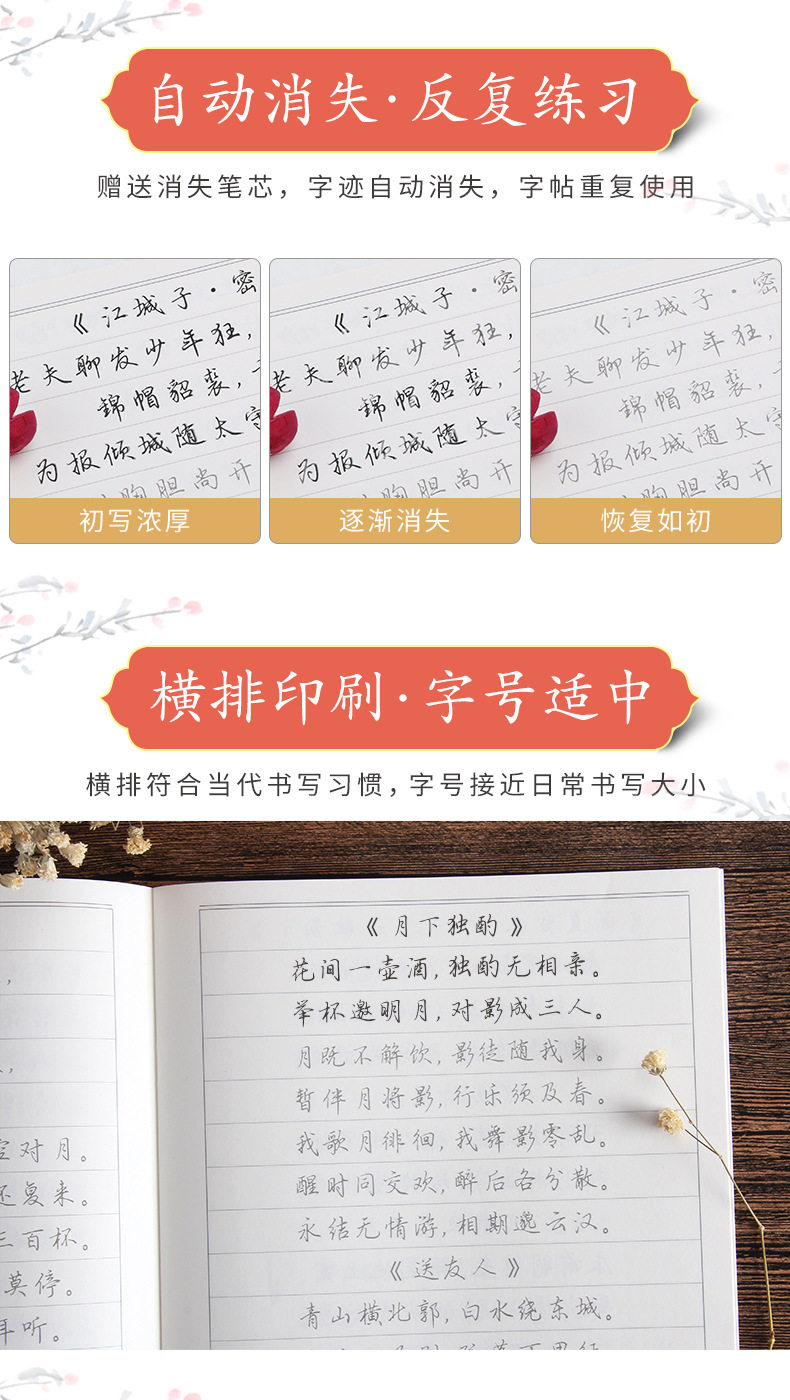 自动消失·反复练习
赠送消失笔芯，字迹自动消失，字帖重复使用
《江城子·密
老夫聊发少年狂，
锦帽貂裘，
为报倾城随太守
胸胆尚开
初写浓厚
《江城子·密
老夫聊发少年狂，
锦帽貂裘，
为报倾城随太守
胸胆尚开
逐渐消失
《江城子·密
老夫聊发少年狂，
锦帽貂裘，
为报倾城随太守
胸胆尚开
恢复如初
横排印刷·字号适中
横排符合当代书写习惯，字号接近日常书写大小
对月。
还复来。
三百杯。
莫停。
耳听。
《月下独酌》
花间一壶酒，独酌无相亲。
举杯邀明月，对影成三人。
月既不解饮，影徒随我身。
暂伴月将影，行乐须及春。
我歌月徘徊，我舞影零乱。
醒时同交欢，醉后各分散。
永结无情游，相期邈云汉。
《送友人》
青山横北郭，白水绕东城。